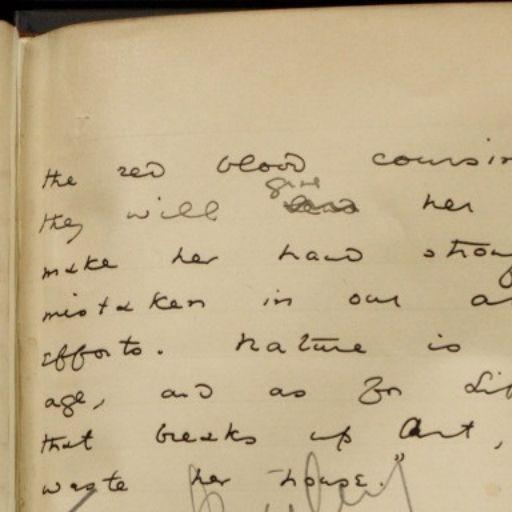 the red blood coursin
give
they will lend her
make her hand strong
mistaken in our a
efforts. Nature is
age, and as for Lif
that breaks up Art,
waste her house."